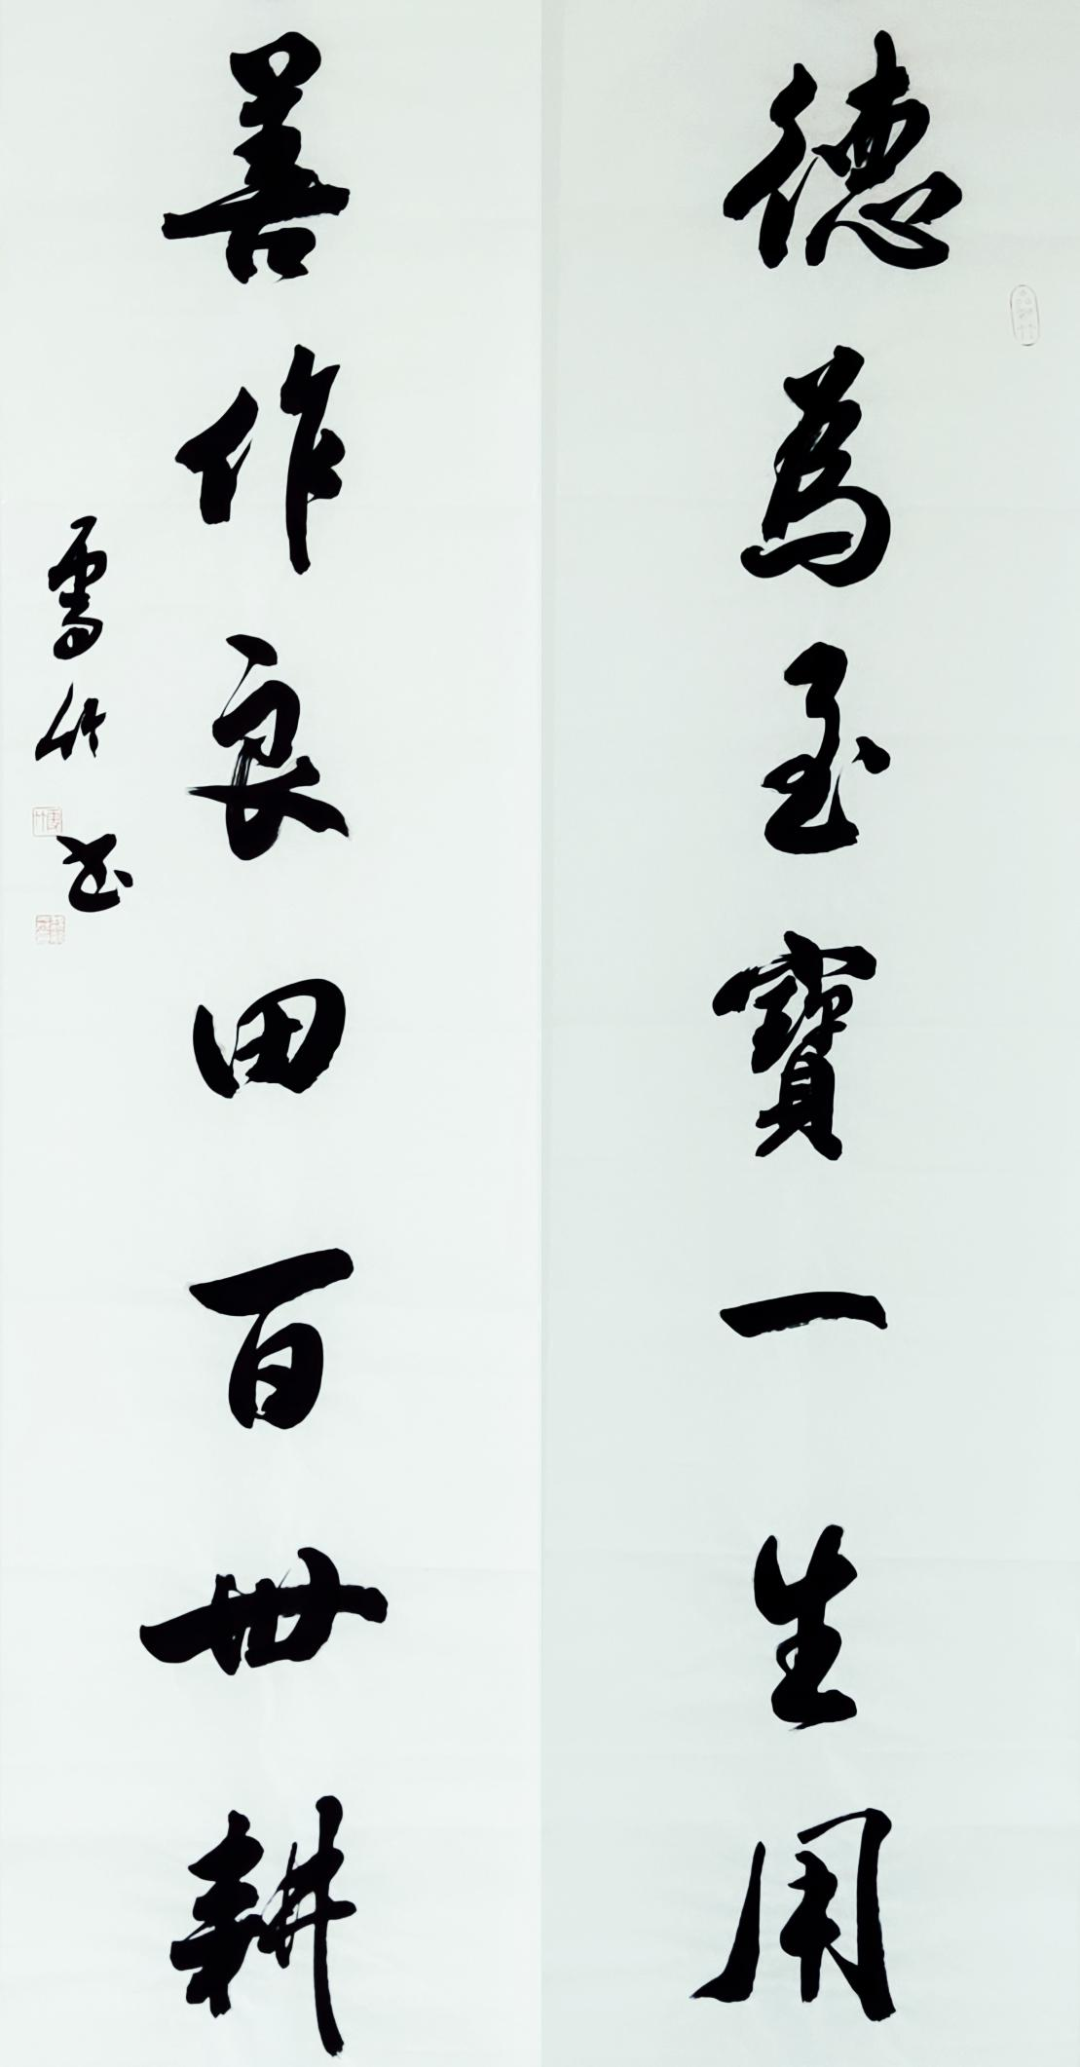 德為至寶一生用
善作良田百世耕
雪竹书